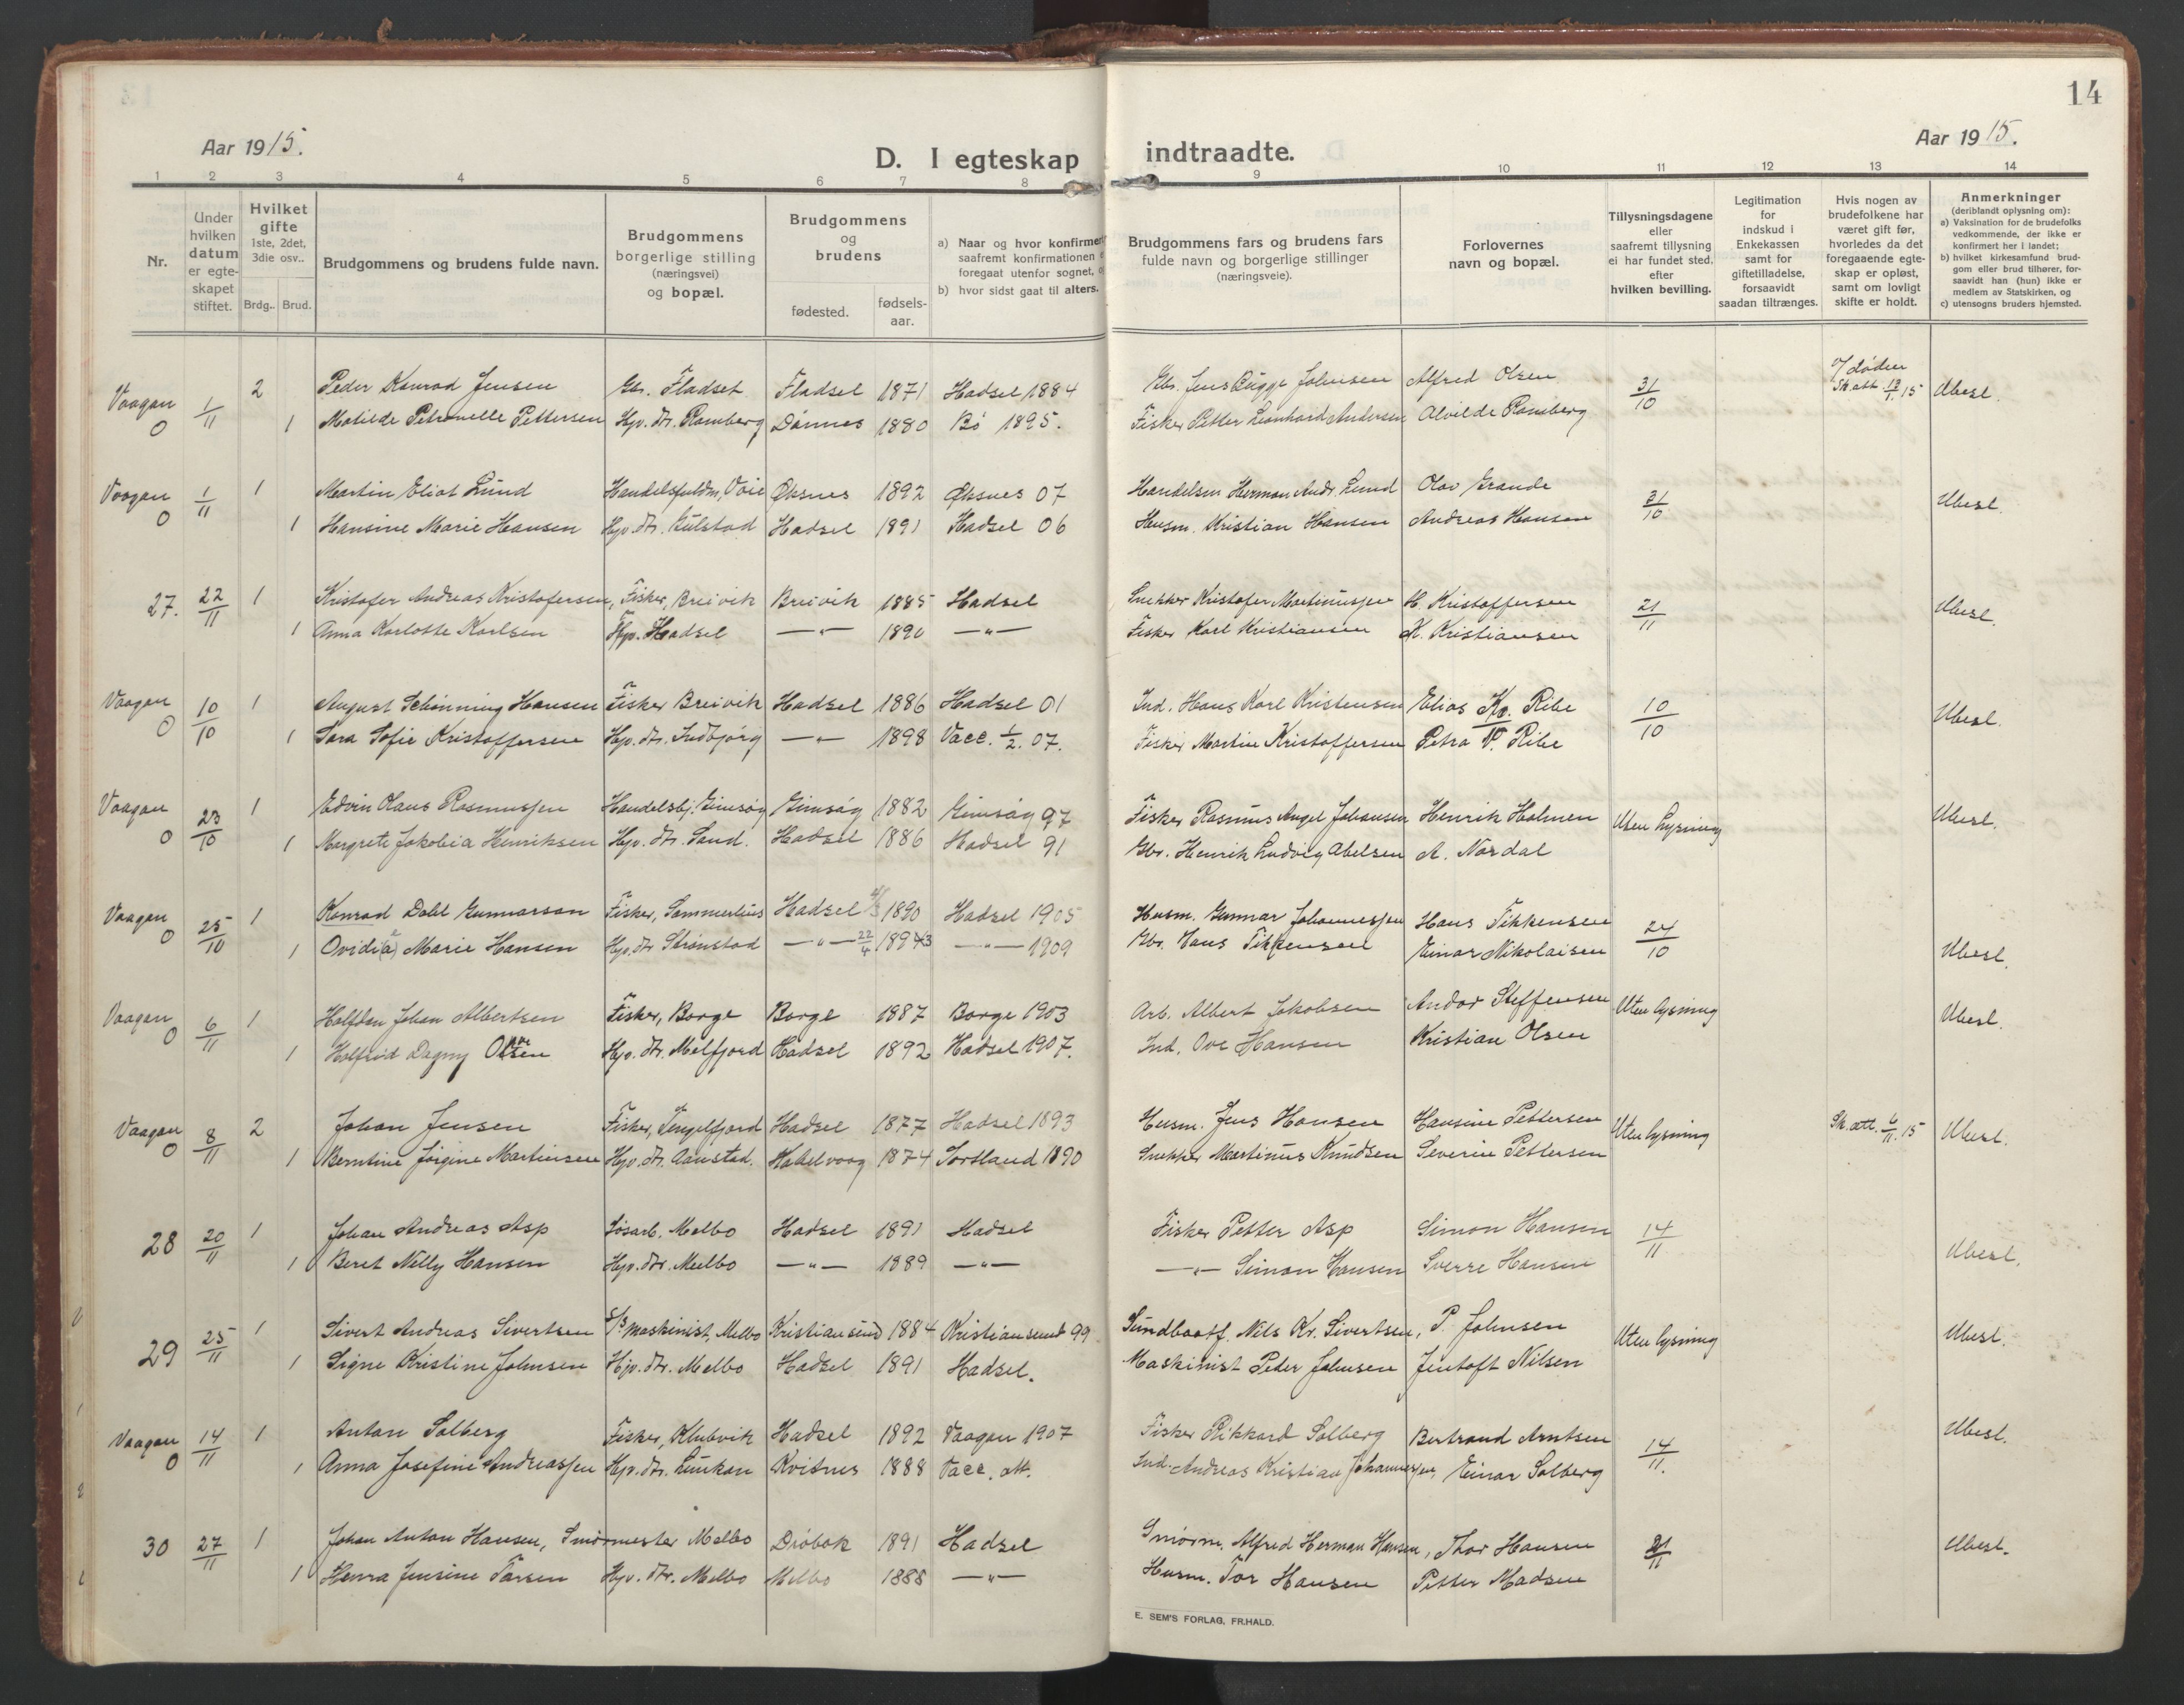 14
Aar 1915.
D. I egteskap indtraadte.
Aar 1915.
1 2 3 4 5 6 7 8 9 10 11 12 13 14
Nr.
Under hvilken datum er egteskapet stiftet.
Hvilket gifte 1ste, 2det, 3die osv..
Brdg.. Brud.
Brudgommens og brudens fulde navn.
Brudgommens borgerlige stilling (næringsvei) og bopæl.
Brudgommens og brudens
fødested. fødselsaar.
a) Naar og hvor konfirmert saafremt konfirmationen foregaat utenfor sognet,
b) hvor sidst gaat til alters.
Brudgommens fars og brudens fars fulde navn og borgerlige stillinger (næringsveie).
Forlovernes navn og bopæl.
Tillysningsdagene eller saafremt tillysning ei har fundet sted. efter hvilken bevilling.
Legitimation for indskud i Enkekassen samt for giftetilladelse, forsaavidt saadan tiltrænges.
Hvis nogen av brudefolkene har været gift før, hvorledes da det foregaaende egteskap er opløst, samt om lovligt skifte er holdt.
Anmerkninger (deriblandt oplysning om):
a) Vaksination for de brudefolks vedkommende, der ikke er konfirmert her i landet;
b) hvilket kirkesamfund brudgom eller brud tilhører, forsaavidt han (hun) ikke er medlem av Statskirken, og
c) utensogns bruders hjemsted.
Vaagan 0 1/11 2 Peder Konrad Jensen Gbr. Fladset Fladset 1871 Hadsel 1884 Gbr. Jens Bugge Johnsen Alfred Olsen 31/10 v/ døden Sk.att. 19/1 15 Ubesl.
1 Matilde Petronelle Pettersen Hp. dtr. Ramberg Dønnes 1880 Bø 1895. Fisker Petter Leonhard Andersen Alvilde Ramberg
Vaagan 0 1/11 1 Martin Eliot Lund Handelsfuldm, Voie Øksnes 1892 Øksnes 07 Handelsm Herman Andr. Lund Olav Grande 31/10 Ubesl.
1 Hansine Marie Hansen Hp. dtr. Gulstad Hadsel 1891 Hadsel 06 Husm. Kristian Hansen Andreas Hansen
27. 22/11 1 Kristofer Andreas Kristofersen, Fisker, Breivik Breivik 1885 Hadsel Snekker Kristofer Martinussen H. Kristoffersen 21/11 Ubesl.
1 Anna Karlotte Karlsen Hp. Hadsel —"— 1890 —"— Fisker Karl Kristiansen K. Kristiansen
Vaagan 0 10/10 1 August Schønning Hansen Fisker Breivik Hadsel 1886 Hadsel 01 Ind. Hans Karl Kristensen Elias Kr. Ribe 10/10 Ubesl.
1 Sara Sofie Kristoffersen Hp. dtr. Indbjørg —"— 1898 Vacc. 1/2. 07. Fisker Martin Kristoffersen Petra V. Ribe
Vaagan 0 23/10 1 Edvin Olaus Rasmussen Handelsbj. Gimsøy Gimsøy 1882 Gimsøy 97 Fisker Rasmus Angel Johansen Henrik Holmen Uten lysning Ubesl.
1 Margrete Jakobia Henriksen Hp. dtr. Sand. Hadsel 1886 Hadsel 91 Gbr. Henrik Ludvig Abelsen A. Nordal
Vaagan 0 25/10 1 Konrad Dahl Gunnarson Fisker, Hadsel 1890 Hadsel 1905 Husm. Gunnar Johannessen Hans Fikkensen 24/10 Ubesl.
1 Ovidi(a) Marie Hansen Hp. dtr Strønstad —"— 22/4 1893 —"— 1909 Gbr. Hans Fikkensen Einar Nikolaisen
Vaagan 0 6/11 1 Halfdan Johan Albertsen Fisker, Borge Borge 1887 Borge 1903 Arb. Albert Jakobsen Andor Steffensen Uten lysning Ubesl.
1 Halfrid Dagny Hp. dtr. Melfjord Hadsel 1892 Hadsel 1907. Ind. Ove Hansen Kristian Olsen
Vaagan 0 8/11 2 Johan Jensen Fisker, Tengelfjord Hadsel 1877 Hadsel 1893 Husm. Jens Hansen Hansine Pettersen Uten lysning Sk. att. 6/11. 15 Ubesl.
1 Berntine Jørgine Martinsen Hp. dtr. Aanstad. Kabelvaag 1874 Sortland 1890 Snekker Martinus Knudsen Severin Pettersen
28 20/11 1 Johan Andreas Asp Løsarb. Melbo Hadsel 1891 Hadsel Fisker Petter Asp Simon Hansen 14/11 Ubesl.
1 Beret Nelly Hansen Hp. dtr. Melbo —"— 1889 —"— —"— Simon Hansen Sverre Hansen
29 25/11 1 Sivert Andreas Sivertsen S/S maskinist, Melbo Kristiansund 1884 Kristiansund 99 Sundbaatf. Nils Kr. Sivertsen, P. Johnsen Uten lysning Ubesl.
1 Signe Kristine Johnsen Hp. dtr. Melbo Hadsel 1891 Hadsel. Maskinist Peder Johnsen Jentoft Nilsen
Vaagan 0 14/11 1 Anton Solberg Fisker, Klubvik Hadsel 1892 Vaagan 1907 Fisker Rikkard Solberg Bertrand Arntsen 14/11. Ubesl.
1 Anna Josefine Andreassen Hp. dtr. Lunkan Kvitnes 1888 Vacc. att. Ind. Andreas Kristian Johannessen, Einar Solberg
30 27/11 1 Johan Anton Hansen, Smørmester Melbo Drøbak 1891 Hadsel Smørm. Alfred Herman Hansen, Thor Hansen 21/11 Ubesl.
1 Henra Jensine Torsen Hp. dtr. Melbo Melbo 1888 —"— Husm. Tor Hansen Petter Madsen
E. SEM'S FORLAG, FR.HALD.